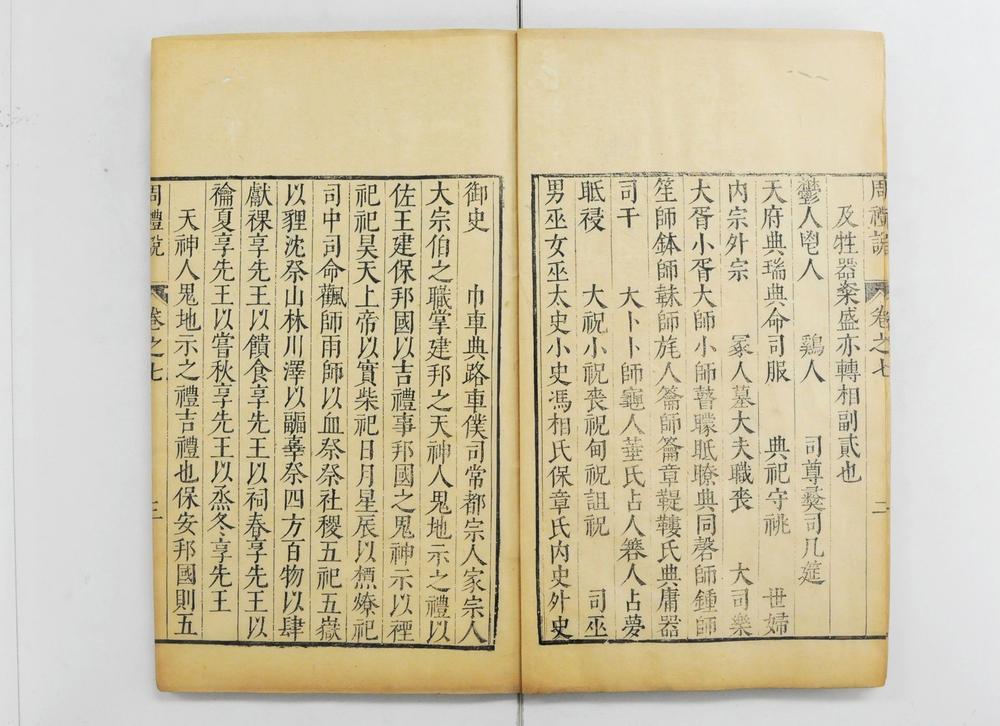 周禮說 卷之七 二
及牲器粢盛亦轉相副貳也
鬱人鬯人 鷄人 司尊彝司几筵
天府典瑞典命司服 典祀守祧 世婦
內宗外宗 冡人墓大夫職喪 大司樂
大胥小胥大師小師瞽矇眡瞭典同磬師鍾師
笙師鎛師韎師旄人籥師籥章鞮鞻氏典庸器
司干 大卜卜師龜人菙氏占人簭人占夢
眡祲 大祝小祝喪祝甸祝詛祝 司巫
男巫女巫太史小史馮相氏保章氏內史外史
御史 巾車典路車僕司常都宗人家宗人
大宗伯之職掌建邦之天神人鬼地示之禮以
佐王建保邦國以吉禮事邦國之鬼神示以禋
祀祀昊天上帝以實柴祀日月星辰以槱燎祀
司中司命飌師雨師以血祭祭社稷五祀五嶽
以貍沈祭山林川澤以疈辜祭四方百物以肆
獻祼享先王以饋食享先王以祠春享先王以
禴夏享先王以嘗秋享先王以烝冬享先王
天神人鬼地示之禮吉禮也保安邦國則五
周禮說 卷之七 三